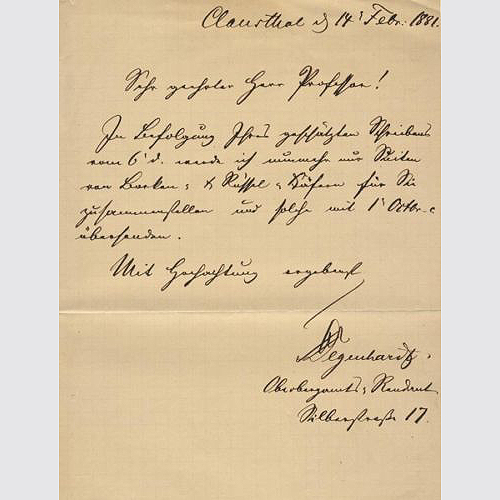 Clausthal d 14t Febr. 1881.
Sehr geehrter Herr Professor!
In Befolgung Ihres geschätzten Schreibens
vom 6t d. werde ich nunmehr nur Suiten
von Borken- & Rüssel-Käfern für Sie
zusammenstellen und solche mit 1t Octbr. c
übersenden.
Mit Hochachtung ergebenst
Degenhardt.
Oberbergamts-Rendant
Silberstraße 17.